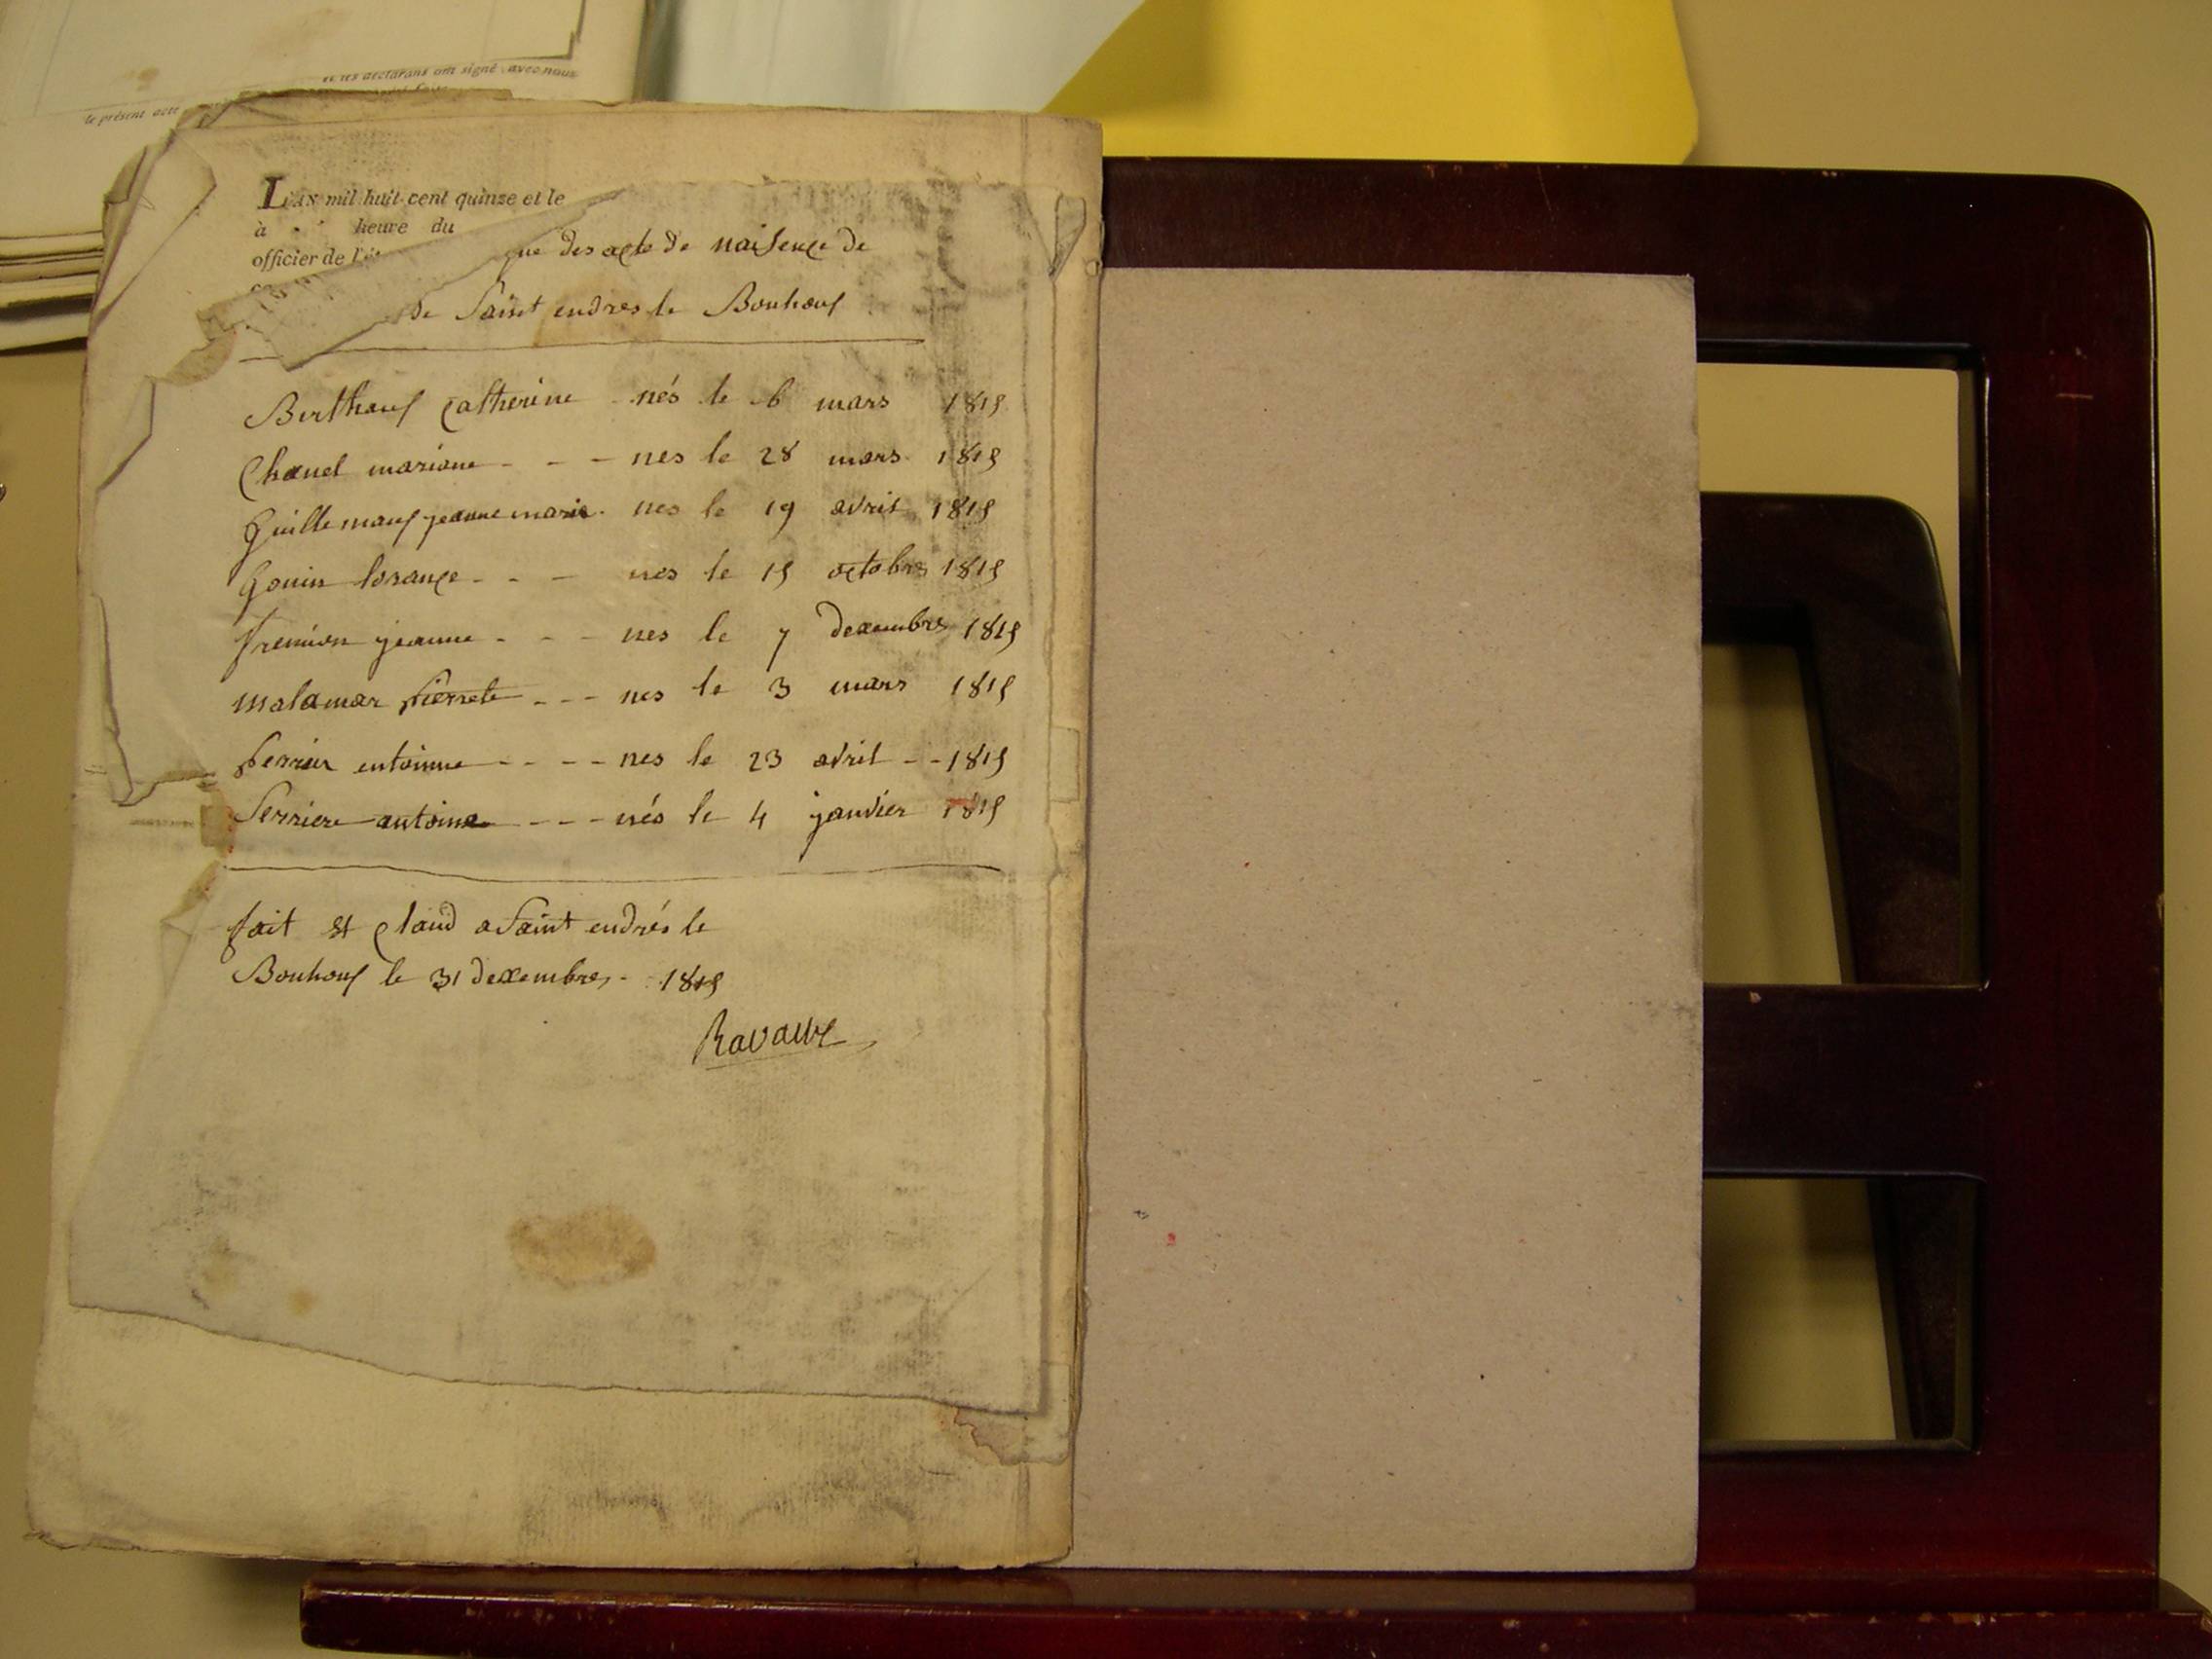 et les déclarans ont signé avec nous
le présent acte
L'AN mil huit cent quinze et le
à heure du
officier de l'é
que des acte de naisence de
de Saint endres le Bouhouf
Berthouf Catherine nés le 6 mars 1815
Chanel mariane - - - nes le 28 mars 1815
Guillemauf jeanne marie. nes le 19 avril 1815
Gonin lorance - - - nes le 15 octobre 1815
fremion jeanne - - - nes le 7 dexembre 1815
malamar pierrete - - - nes le 3 mars 1815
perrier entoinne - - - - nes le 23 avril - - 1815
Serriere antoine - - - nés le 4 janvier 1815
fait et Claud a Saint endrés le
Bouhouf le 31 dexembre - 1815